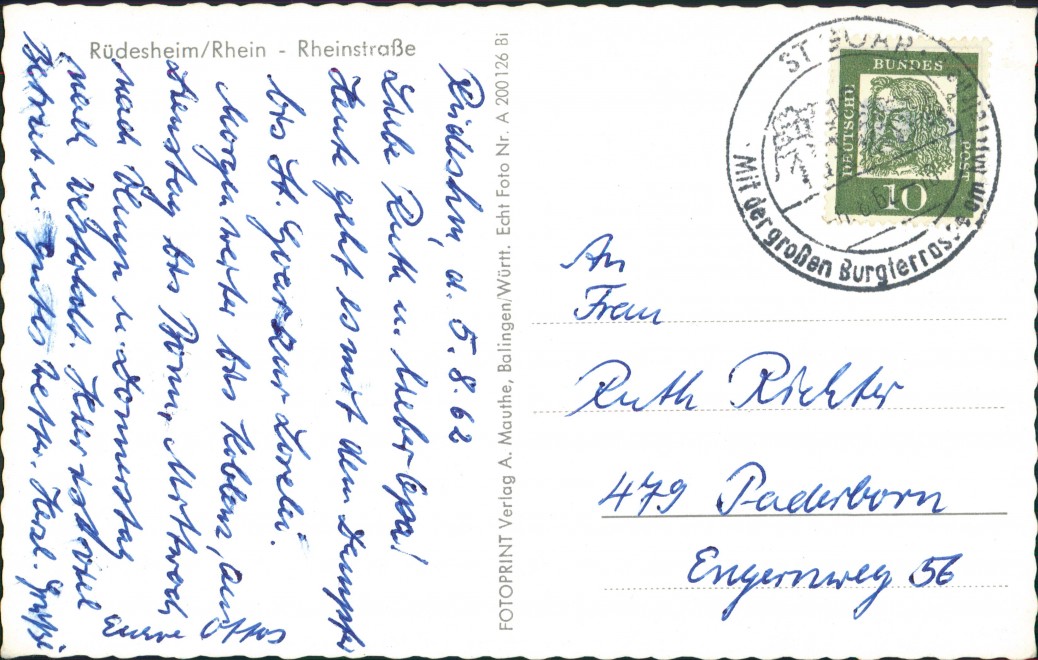 Rüdesheim/Rhein - Rheinstraße
Rüdeshm, d. 5.8.62
Liebe Ruth u. lieber Opa!
Heute geht es mit dem Dampfer
bis St. Goar zur Lorelei.
Morgen weiter bis Koblenz, am
Dienstag bis Bonn, Mittwoch
nach u. Donnerstag
nach Hier ist viel
Betrieb u. gutes Wetter. Herzl. Grüße
Eure Ottos
FOTOPRINT Verlag A. Mauthe, Balingen/Württ. Echt Foto Nr. A 200 126 Bi
ST GOAR
Mit der großen Burgterrasse
DEUTSCHE BUNDESPOST
10
An
Frau
Ruth Richter
479 Paderborn
Engernweg 56